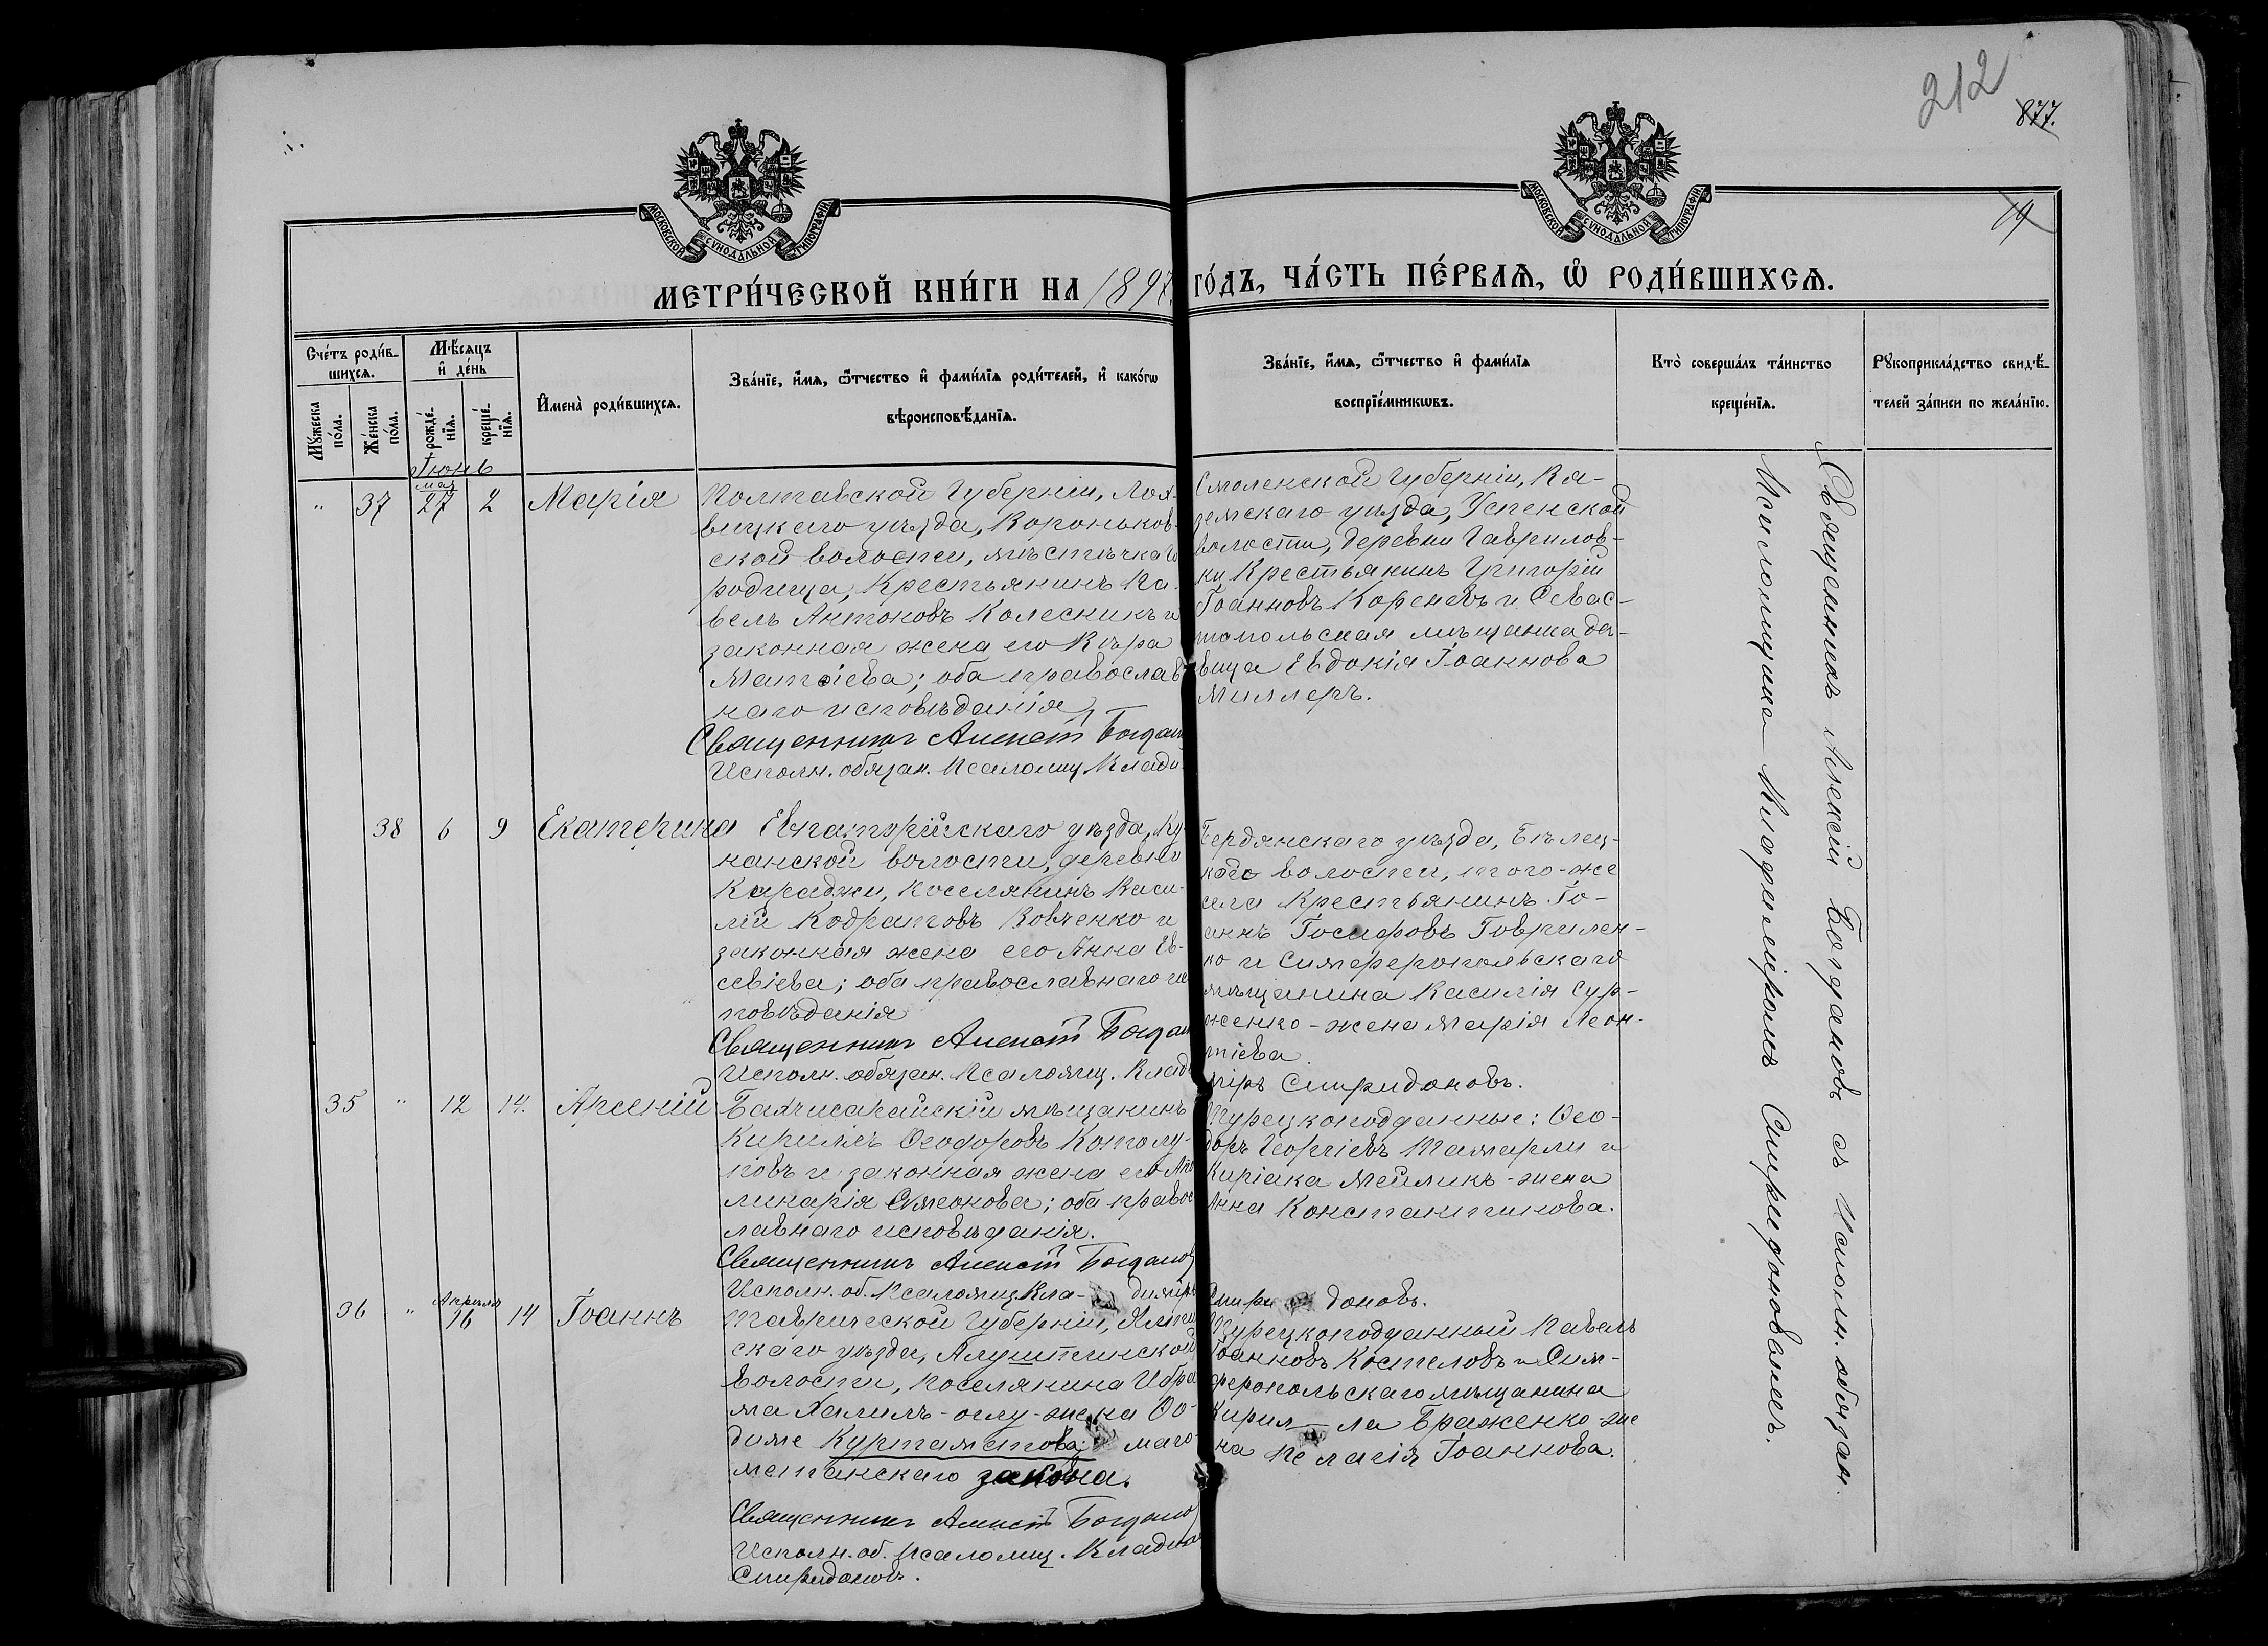 212
877.
19
МОСКОВСКОЙ СѴНОДАЛЬНОЙ ТИПОГРАФІИ
МОСКОВСКОЙ СѴНОДАЛЬНОЙ ТИПОГРАФІИ
МЕТРИ́ЧЕСКОЙ КНИ́ГИ НА 1897 ГО́ДЪ, ЧА́СТЬ ПЕ́РВАѦ, Ѡ҆ РОДИ́ВШИХСѦ.
Сче́тъ роди́в-
шихсѧ.
Мꙋ́жеска по́ла.
Же́нска по́ла.
Мѣ́сѧцъ
и҆ де́нь
рожде́-
нїѧ.
креще́-
нїѧ.
И҆мена̀ роди́вшихсѧ.
Зва́нїе, и҆́мѧ, ѻ҆́тчество и҆ фами́лїѧ роди́телей, и҆ како́гѡ
вѣроисповѣ́данїѧ.
Зва́нїе, и҆́мѧ, ѻ҆́тчество и҆ фами́лїѧ
воспрїе́мникѡвъ.
Кто̀ соверша́лъ та́инство
креще́нїѧ.
Рꙋкоприкла́дство свидѣ́-
телей за́писи по жела́нїю.
Іюнь
„ 37 мая 27 2 Марія
Полтавской Губерніи, Лох-
вицкаго уѣзда, Вороньков-
ской волости, мѣстечка Го
родища, Крестьянинъ Па-
велъ Антоновъ Колесникъ и
законная жена его Вѣра
Матѳіева; оба православ
наго исповѣданія
Священникъ Алексій Богдан
Исполн. обязан. Псаломщ. Влади
Смоленской Губерніи, Вя-
земскаго уѣзда, Успенской
волости, деревни Гаврилов-
ки Крестьянинъ Григорій
Іоанновъ Кореневъ и Севас-
топольская мѣщанка дѣ-
вица Евдокія Іоаннова
Миллеръ.
38 6 9 Екатерина
Евпаторійскаго уѣзда, Ку-
нанской волости, деревни
Караджи, поселянинъ Васи-
лій Кодратовъ Вовченко и
законная жена его Анна Ев-
севіева; оба православнаго ис
повѣданія
Священникъ Алексій Богдан
Исполн. обязан. Псаломщ. Влади
Бердянскаго уѣзда, Бѣлец-
каго волости, того-же
села Крестьянинъ Іо-
аннъ Іосифовъ Гаврилен-
ко и Симферопольскаго
мѣщанина Василія Сур-
женко - жена Марія Леон-
тіева.
міръ Спиридоновъ.
35 „ 12 14. Арсеній
Бахчисарайскій мѣщанинъ
Кириллъ Ѳеодоровъ Котолу-
повъ и законная жена его Апо
линарія Симеонова; оба правос
лавнаго исповѣданія.
Священникъ Алексій Богданов
Исполн. об. Псаломщ Вла- димиръ
Турецкоподданные: Ѳео-
доръ Георгіевъ Тамарли и
Киріака Меймикъ - жена
Анна Константинова.
Спири доновъ.
36 „ Апрѣля 16 14 Іоаннъ
Таврической Губерніи, Ялтин
скаго уѣзда, Алуштинской
волости, поселянина Ибра
ма Халиль-оглу-жена Ѳо-
диме Куртаметова: маго-
метанскаго закона.
Священникъ Алексій Богданов
Исполн. об. Псаломщ. Владим
Спиридоновъ.
Турецкоподданный Павелъ
Іоанновъ Костеловъ и Сим-
феропольскаго мѣщанина
Кирил-ла Браженко-же
на Пелагія Іоаннова.
Священникъ Алексій Богдановъ съ Исполн. обязан.
Псаломщика Владиміромъ Спиридоновымъ.